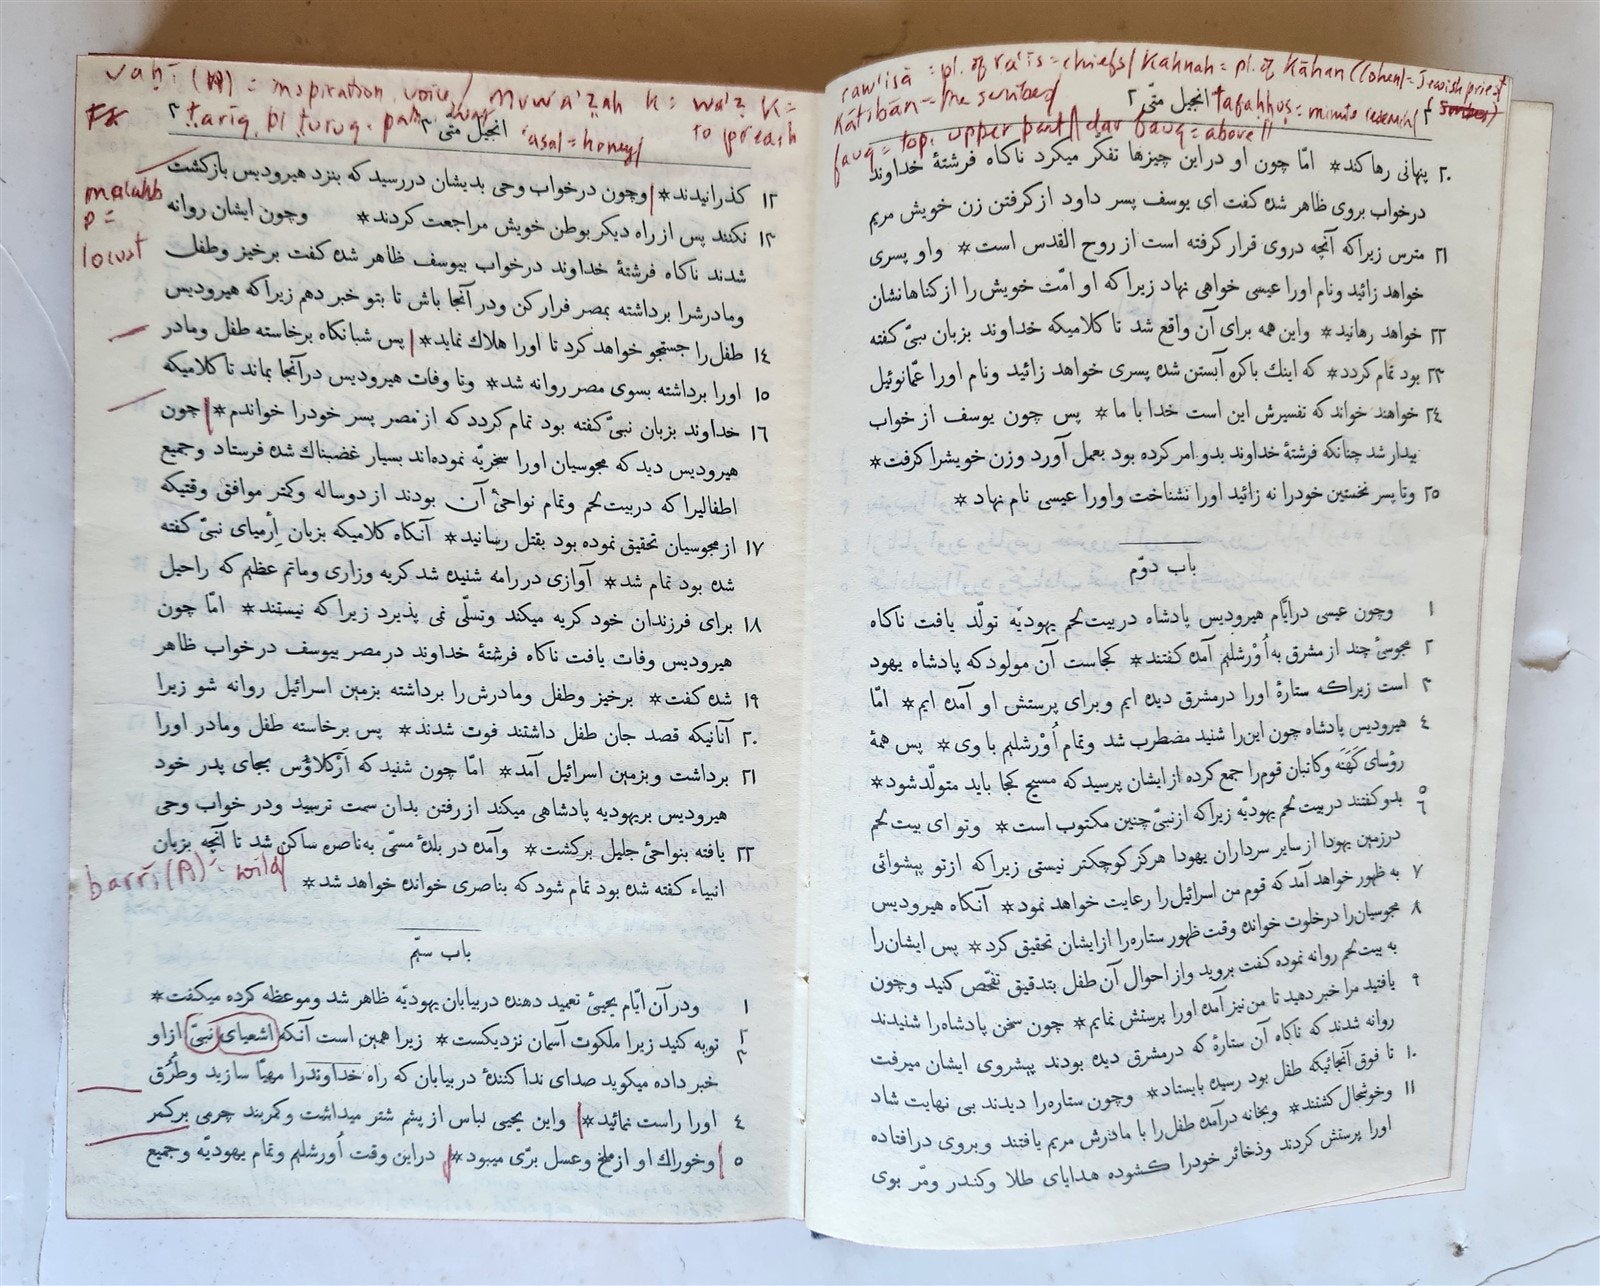 rawīsā = pl. of ra'īs = chiefs/ Kahnah = pl. of Kāhan (Cohen) = Jewish priest
Kātibān = the scribes/
tafahhus = minute
fauq = top, upper part/ dar fauq = above//
انجیل متّی ۲
۲۰ پنهانی رها کند * امّا چون او در این چیزها تفکّر میکرد ناکاه فرشتهٔ خداوند
درخواب بروی ظاهر شده کفت ای یوسف پسر داود از کرفتن زن خویش مریم
۲۱ مترس زیراکه آنچه دروی قرار کرفته است از روح القدس است * واو پسری
خواهد زائید ونام اورا عیسی خواهی نهاد زیراکه او امّت خویش را از کناهانشان
۲۲ خواهد رهانید * واین همه برای آن واقع شد تا کلامیکه خداوند بزبان نبیّ کفته
۲۳ بود تمام کردد * که اینك باکره آبستن شده پسری خواهد زائید ونام اورا عمّانوئیل
۲٤ خواهند خواند که تفسیرش این است خدا با ما * پس چون یوسف از خواب
بیدار شد چنانکه فرشتهٔ خداوند بدو امر کرده بود بعمل آورد وزن خویشرا کرفت *
۲۵ وتا پسر نخستین خودرا نه زائید اورا نشناخت واورا عیسی نام نهاد *
باب دوّم
۱ وچون عیسی درایّام هیرودیس پادشاه در بیت لحم یهودیّه تولّد یافت ناکاه
۲ مجوسیٔ چند از مشرق به اُوْرشلیم آمده کفتند * کجاست آن مولود که پادشاه یهود
۳ است زیراکه ستارهٔ اورا درمشرق دیده ایم وبرای پرستش او آمده ایم * امّا
٤ هیرودیس پادشاه چون این را شنید مضطرب شد وتمام اُوْرشلیم با وی * پس همهٔ
رؤسای کَهَنَه وکاتبان قوم را جمع کرده از ایشان پرسید که مسیح کجا باید متولّد شود *
۵ ۶ بدو کفتند در بیت لحم یهودیّه زیراکه از نبیّ چنین مکتوب است * وتو ای بیت لحم
درزمین یهودا از سایر سرداران یهودا هرکز کوچکتر نیستی زیراکه از تو پیشوائی
۷ به ظهور خواهد آمد که قوم من اسرائیل را رعایت خواهد نمود * آنکاه هیرودیس
۸ مجوسیان را درخلوت خوانده وقت ظهور ستاره را از ایشان تحقیق کرد * پس ایشان را
به بیت لحم روانه نموده کفت بروید واز احوال آن طفل بتدقیق تفحّص کنید وچون
۹ یافتید مرا خبر دهید تا من نیز آمده اورا پرستش نمایم * چون سخن پادشاه را شنیدند
روانه شدند که ناکاه آن ستارهٔ که درمشرق دیده بودند پیشروی ایشان میرفت
۱۰ تا فوق آنجائیکه طفل بود رسیده بایستاد * وچون ستاره را دیدند بی نهایت شاد
۱۱ وخوشحال کشتند * وبخانه درآمده طفل را با مادرش مریم یافتند وبروی درافتاده
اورا پرستش کردند وذخائر خودرا کشوده هدایای طلا وکندر ومرّ بوی
vahī (A) = inspiration, voice/ muwa'zah k = wa'z k =
to preach
tarīq, pl turuq = path, way
'asal = honey/
انجیل متّی ۳
۳
malakh
p =
locust
۱۲ کذرانیدند * وچون درخواب وحی بدیشان دررسید که بنزد هیرودیس بازکشت
۱۳ نکنند پس از راه دیکر بوطن خویش مراجعت کردند * وچون ایشان روانه
شدند ناکاه فرشتهٔ خداوند درخواب بیوسف ظاهر شده کفت برخیز وطفل
ومادرشرا برداشته بمصر فرار کن ودرآنجا باش تا بتو خبر دهم زیراکه هیرودیس
۱٤ طفل را جستجو خواهد کرد تا اورا هلاك نماید * پس شبانکاه برخاسته طفل ومادر
۱۵ اورا برداشته بسوی مصر روانه شد * وتا وفات هیرودیس درآنجا بماند تا کلامیکه
۱۶ خداوند بزبان نبیّ کفته بود تمام کردد که از مصر پسر خودرا خواندم * چون
هیرودیس دید که مجوسیان اورا سخریّه نموده‌اند بسیار غضبناك شده فرستاد وجمیع
اطفالیرا که دربیت لحم وتمام نواحیٔ آن بودند از دوساله وکمتر موافق وقتیکه
۱۷ از مجوسیان تحقیق نموده بود بقتل رسانید * آنکاه کلامیکه بزبان اِرْمیای نبیّ کفته
شده بود تمام شد * آوازی در رامه شنیده شد کریه وزاری وماتم عظیم که راحیل
۱۸ برای فرزندان خود کریه میکند وتسلّی نمی پذیرد زیراکه نیستند * امّا چون
هیرودیس وفات یافت ناکاه فرشتهٔ خداوند درمصر بیوسف درخواب ظاهر
۱۹ شده کفت * برخیز وطفل ومادرش را برداشته بزمین اسرائیل روانه شو زیرا
۲۰ آنانیکه قصد جان طفل داشتند فوت شدند * پس برخاسته طفل ومادر اورا
۲۱ برداشت وبزمین اسرائیل آمد * امّا چون شنید که اَرْکلاؤُس بجای پدر خود
هیرودیس بریهودیه پادشاهی میکند از رفتن بدان سمت ترسید ودر خواب وحی
۲۲ یافته بنواحیٔ جلیل برکشت * وآمده در بلدهٔ مسمّی به‌ناصره ساکن شد تا آنچه بزبان
انبیاء کفته شده بود تمام شود که بناصری خوانده خواهد شد *
barrī (A) = wild/
باب سیّم
۱ ودرآن ایّام یحییٔ تعمید دهنده دربیابان یهودیّه ظاهر شد وموعظه کرده میکفت *
۲ ۳ توبه کنید زیرا ملکوت آسمان نزدیکست * زیرا همین است آنکه اشعیای نبیّ ازاو
خبر داده میکوید صدای نداکنندهٔ دربیابان که راه خداوندرا مهیّا سازید وطُرُق
٤ اورا راست نمائید * واین یحیی لباس از پشم شتر میداشت وکمربند چرمی برکمر
۵ وخوراك او از ملخ وعسل برّی میبود * دراین وقت اُورشلیم وتمام یهودیّه وجمیع